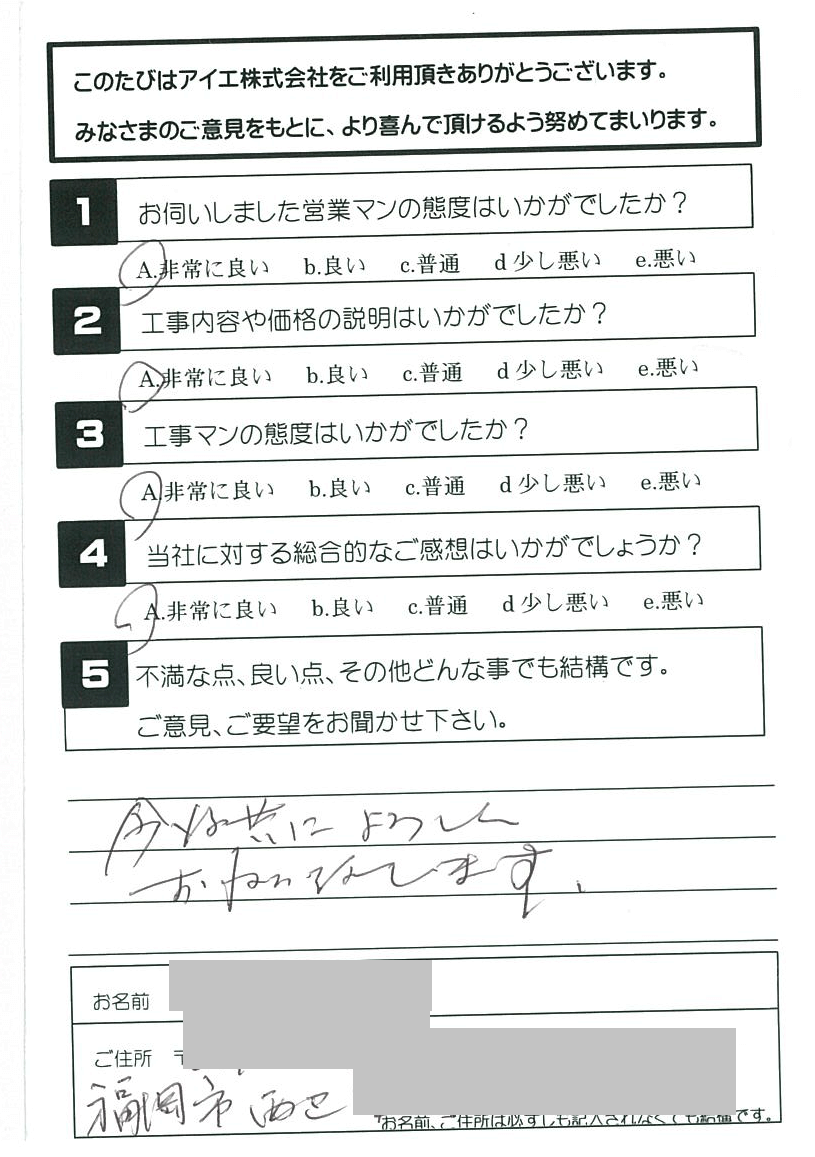 このたびはアイエ株式会社をご利用頂きありがとうございます。
みなさまのご意見をもとに、より喜んで頂けるよう努めてまいります。
1 お伺いしました営業マンの態度はいかがでしたか？
A.非常に良い b.良い c.普通 d 少し悪い e.悪い
2 工事内容や価格の説明はいかがでしたか？
A.非常に良い b.良い c.普通 d 少し悪い e.悪い
3 工事マンの態度はいかがでしたか？
A.非常に良い b.良い c.普通 d 少し悪い e.悪い
4 当社に対する総合的なご感想はいかがでしょうか？
A.非常に良い b.良い c.普通 d 少し悪い e.悪い
5 不満な点、良い点、その他どんな事でも結構です。
ご意見、ご要望をお聞かせ下さい。
今後共によろしく
お願い致します、
お名前
ご住所 〒
福岡市西区
お名前、ご住所は必ずしも記入されなくても結構です。